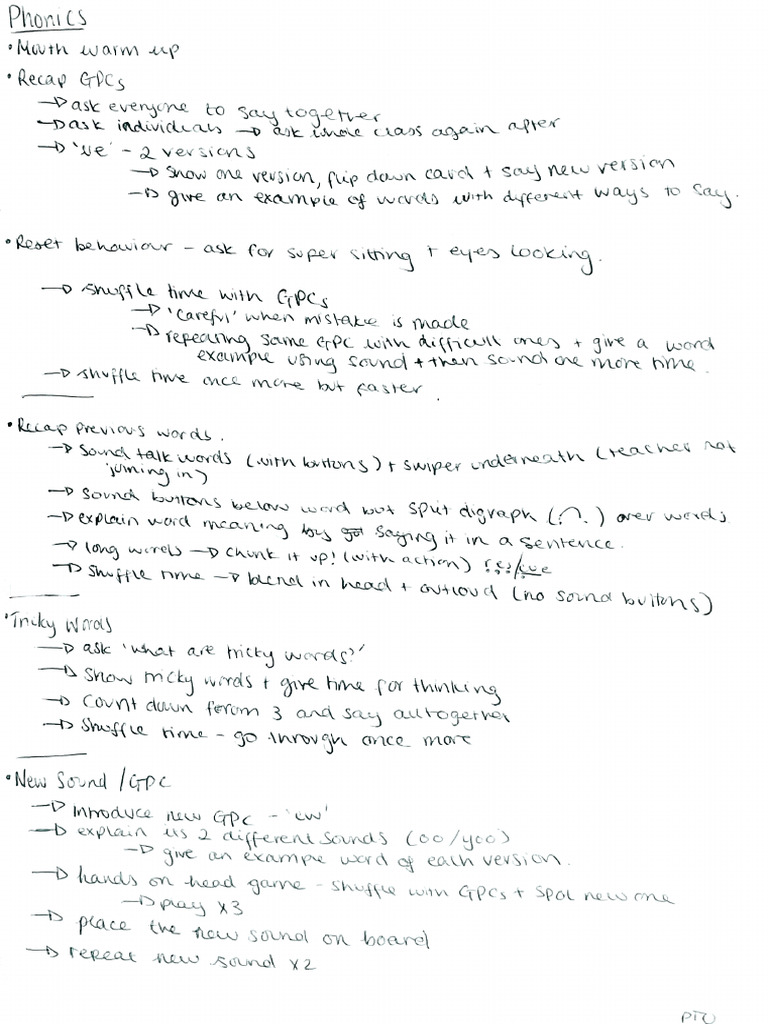 Phonics
• Mouth warm up
• Recap GPCs
→ ask everyone to say together
→ ask individuals → ask whole class again after
→ 'ue' - 2 versions
→ show one version, flip down card + say new version
→ give an example of words with different ways to say.
• Reset behaviour - ask for super sitting + eyes looking.
→ shuffle time with GPCs
→ 'careful' when mistake is made
→ repeating same GPC with difficult ones + give a word
example using sound + then sound one more time.
→ shuffle time once more but faster.
• Recap previous words.
→ sound talk words (with buttons) + swiper underneath (teacher not
joining in)
→ sound buttons below word but split digraph (.⌒.) over words
→ explain word meaning by saying it in a sentence.
→ long words → chunk it up! (with action) res/cue
→ shuffle time → blend in head + outloud (no sound buttons)
• Tricky Words
→ ask 'what are tricky words?'
→ show tricky words + give time for thinking
→ count down from 3 and say altogether
→ shuffle time - go through once more
• New Sound / GPC
→ introduce new GPC - 'ew'
→ explain its 2 different sounds (oo/yoo)
→ give an example word of each version.
→ hands on head game - shuffle with GPCs + spot new one
→ play x3
→ place the new sound on board
→ repeat new sound x2
PTO